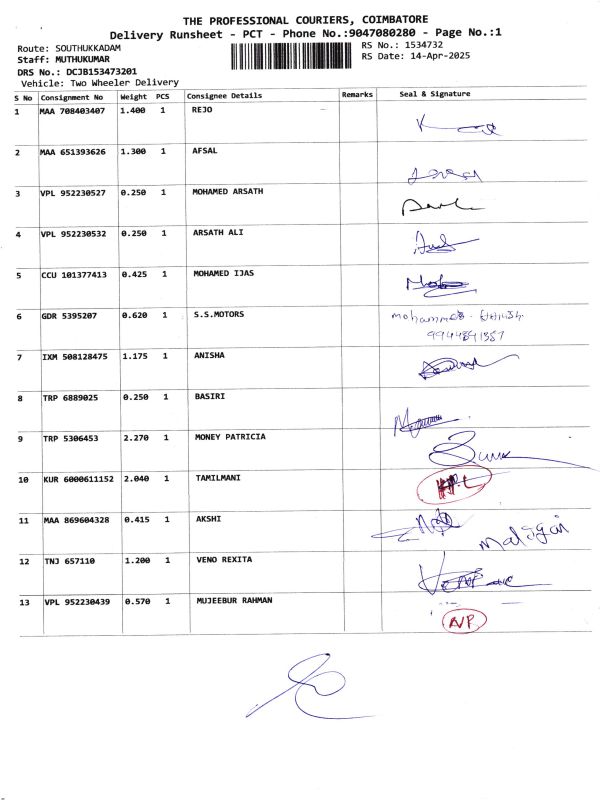 THE PROFESSIONAL COURIERS, COIMBATORE
Delivery Runsheet - PCT - Phone No.:9047080280 - Page No.:1
Route: SOUTHUKKADAM
RS No.: 1534732
Staff: MUTHUKUMAR
RS Date: 14-Apr-2025
DRS No.: DCJB153473201
Vehicle: Two Wheeler Delivery
S No Consignment No Weight PCS Consignee Details Remarks Seal & Signature
1 MAA 708403407 1.400 1 REJO
2 MAA 651393626 1.300 1 AFSAL
3 VPL 952230527 0.250 1 MOHAMED ARSATH
4 VPL 952230532 0.250 1 ARSATH ALI
5 CCU 101377413 0.425 1 MOHAMED IJAS
6 GDR 5395207 0.620 1 S.S.MOTORS
7 IXM 508128475 1.175 1 ANISHA
8 TRP 6889025 0.250 1 BASIRI
9 TRP 5306453 2.270 1 MONEY PATRICIA
10 KUR 6000611152 2.040 1 TAMILMANI
11 MAA 869604328 0.415 1 AKSHI
12 TNJ 657110 1.200 1 VENO REXITA
13 VPL 952230439 0.570 1 MUJEEBUR RAHMAN
N/P